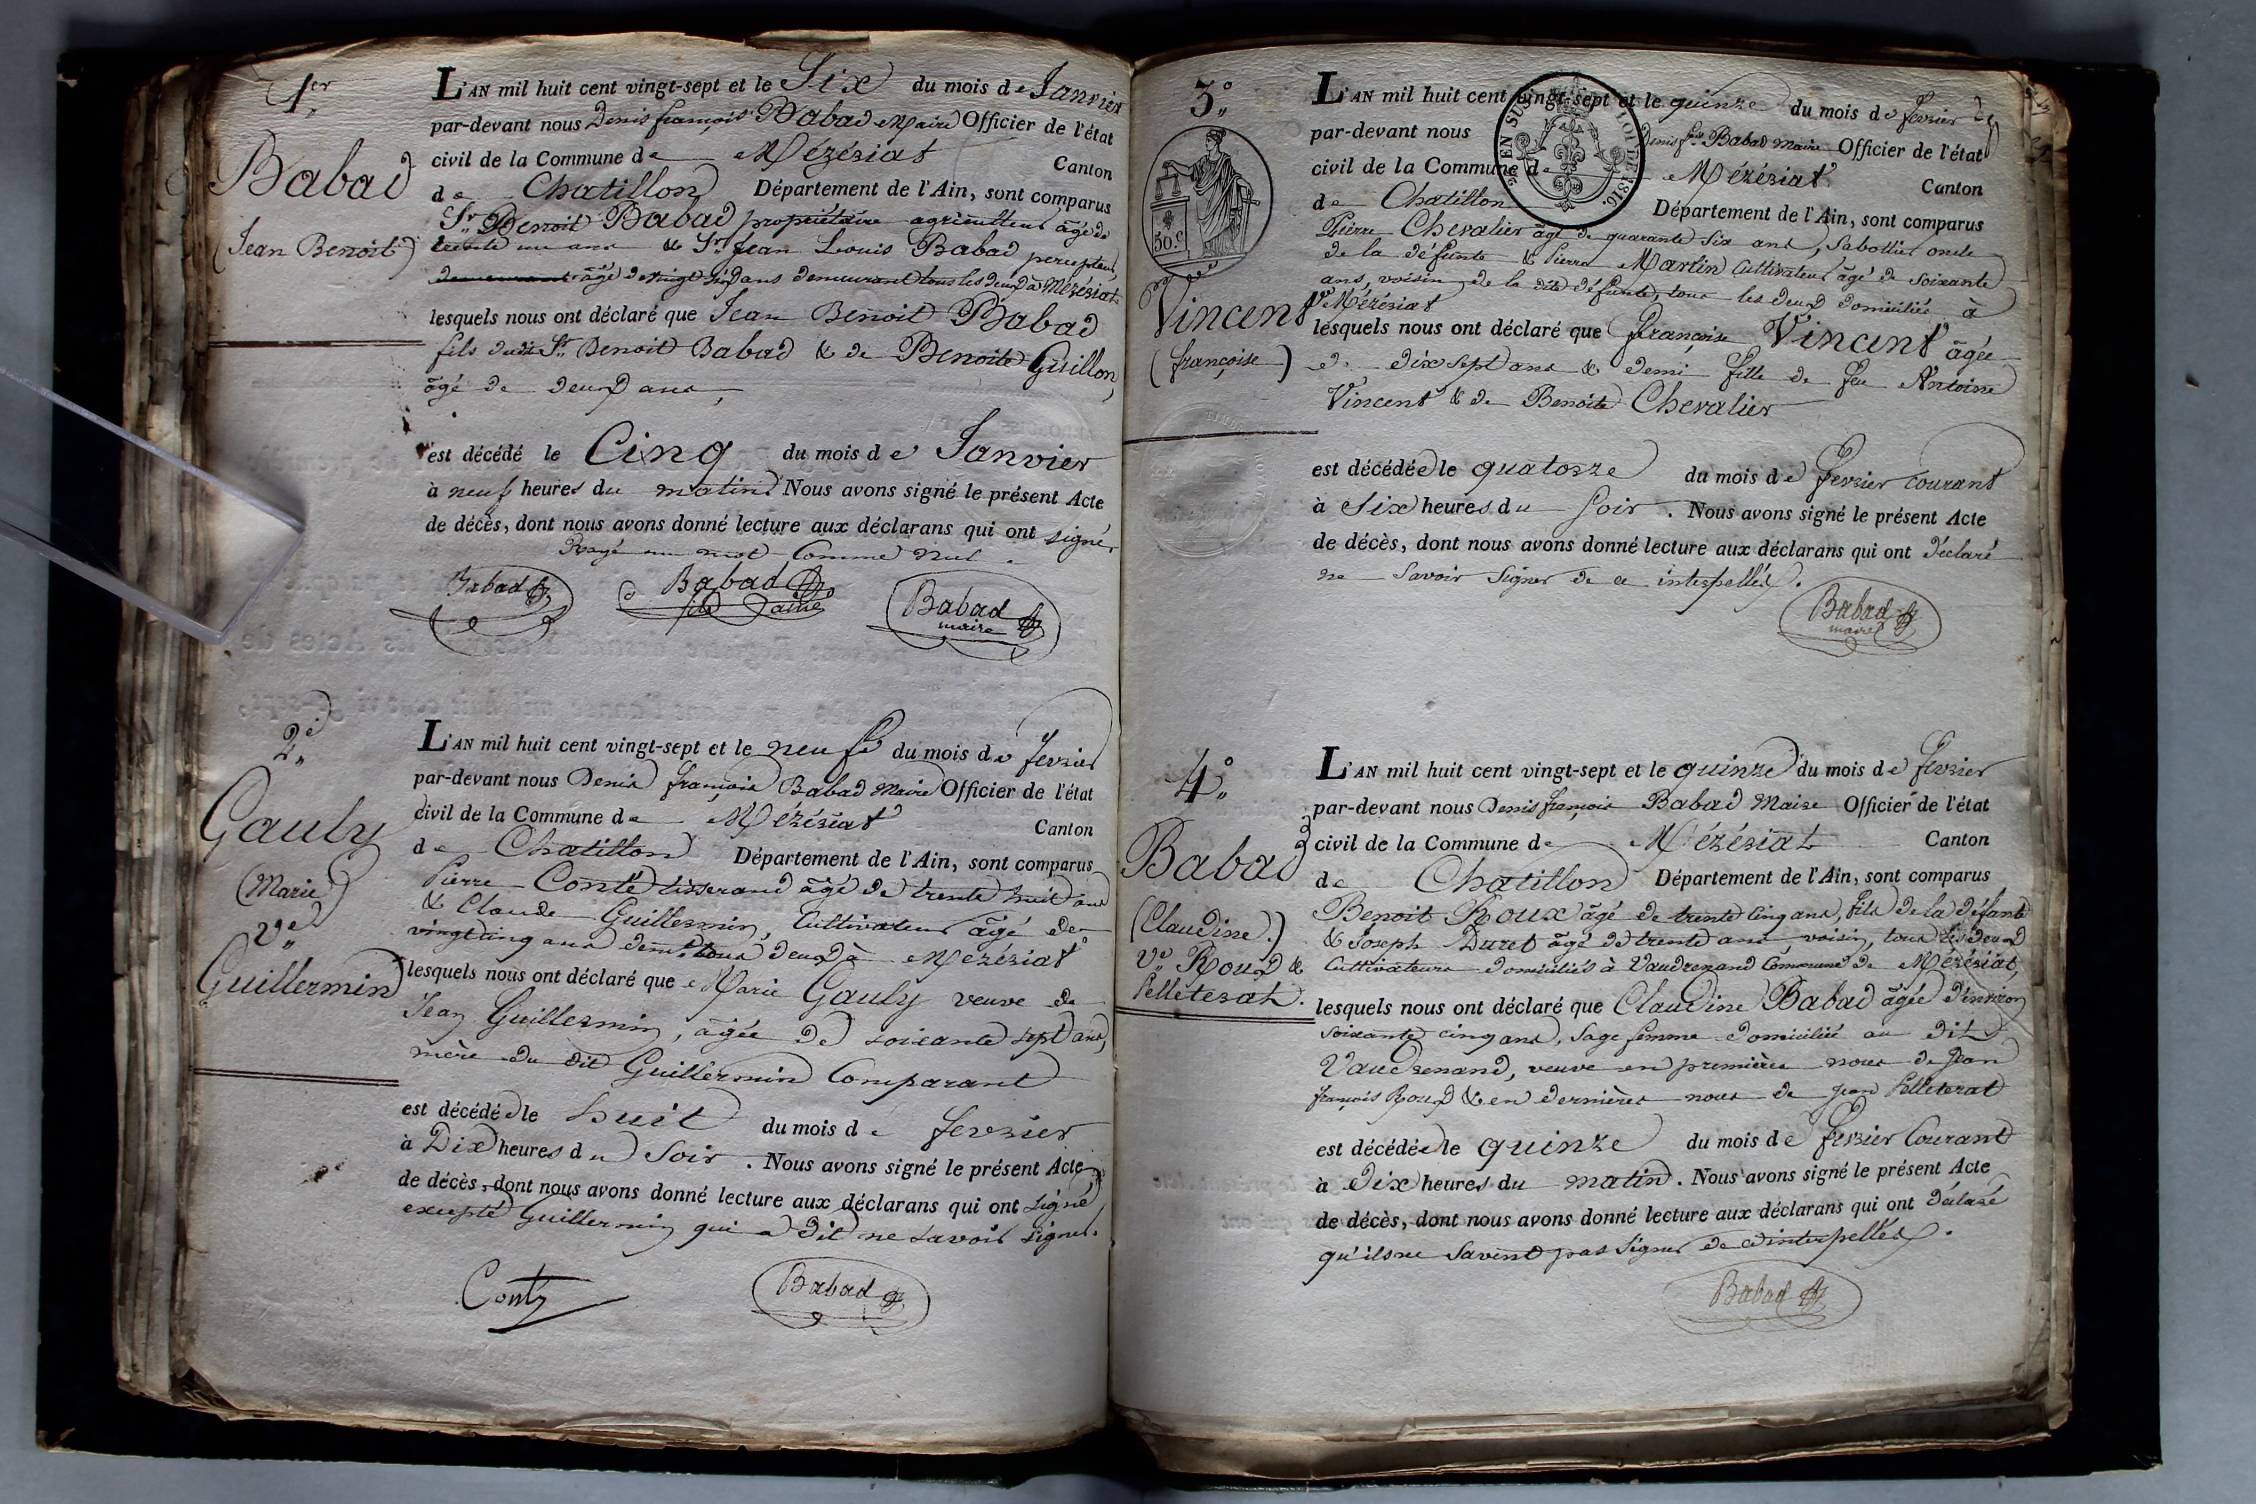 1er
Babad
(Jean Benoit)
L'AN mil huit cent vingt-sept et le Six du mois de Janvier
par-devant nous Denis françois Babad Maire Officier de l'état
civil de la Commune de Mézériat Canton
de Chatillon Département de l'Ain, sont comparus
Sr Benoit Babad propriétaire agriculteur âgé de
trente un ans & Sr Jean Louis Babad percepteur
âgé de vingt six ans demeurant tous les deux à Mézériat
lesquels nous ont déclaré que Jean Benoit Babad
fils dudit Sr Benoit Babad & de Benoite Grillon,
âgé de deux ans,
est décédé le Cinq du mois de Janvier
à neuf heures du matin. Nous avons signé le présent Acte
de décès, dont nous avons donné lecture aux déclarans qui ont signé,
Rayé un mot Comme nul.
Babad Babad fils ainé Babad maire
2e
Gauly
(Marie)
Ve
Guillermin
L'AN mil huit cent vingt-sept et le neuf du mois de fevrier
par-devant nous Denis françois Babad Maire Officier de l'état
civil de la Commune de Mézériat Canton
de Chatillon Département de l'Ain, sont comparus
Pierre Conté tisserand âgé de trente huit ans
& Claude Guillermin, Cultivateur âgé de
vingt cinq ans dem.t tous deux à Mézériat
lesquels nous ont déclaré que Marie Gauly veuve de
Jean Guillermin, âgée de soixante sept ans,
mère du dit Guillermin Comparant
est décédée le huit du mois de fevrier
à Dix heures du Soir. Nous avons signé le présent Acte
de décès, dont nous avons donné lecture aux déclarans qui ont signé
excepté Guillermin qui a dit ne savoir signer.
Conty Babad
3e
50.c
Vincent
(françoise)
L'AN mil huit cent vingt-sept et le quinze du mois de fevrier
par-devant nous Denis fois Babad Maire Officier de l'état
EN SUS LOI DE 1816.
civil de la Commune de Mézériat Canton
de Chatillon Département de l'Ain, sont comparus
Pierre Chevalier âgé de quarante six ans, Sabottier oncle
de la défunte & Pierre Martin Cultivateur âgé de soixante
ans, voisin de la dite défunte, tous les deux domiciliés à
Mézériat
lesquels nous ont déclaré que françoise Vincent âgée
de dix sept ans & demi fille de feu Antoine
Vincent & de Benoite Chevalier
est décédée le quatorze du mois de fevrier courant
à Six heures du Soir. Nous avons signé le présent Acte
de décès, dont nous avons donné lecture aux déclarans qui ont déclaré
ne Savoir Signer de ce interpellés.
Babad maire
4e
Babad
(Claudine.)
Ve Roux &
Pelleterat.
L'AN mil huit cent vingt-sept et le quinze du mois de fevrier
par-devant nous Denis françois Babad Maire Officier de l'état
civil de la Commune de Mézériat Canton
de Chatillon Département de l'Ain, sont comparus
Benoit Roux âgé de trente Cinq ans, fils de la défunte
& Joseph Duret âgé de trente ans, voisin, tous les deux
Cultivateurs domiciliés à Vaudrenand Commune de Mézériat,
lesquels nous ont déclaré que Claudine Babad âgée d'environ
soixante cinq ans, Sage femme domiciliée au dit
Vaudrenand, veuve en premières noces de Jean
françois Roux & en dernières noces de Jean Pelleterat
est décédée le quinze du mois de fevrier Courant
à Dix heures du matin. Nous avons signé le présent Acte
de décès, dont nous avons donné lecture aux déclarans qui ont déclaré
qu'ils ne Savent pas Signer de ce interpellés.
Babad